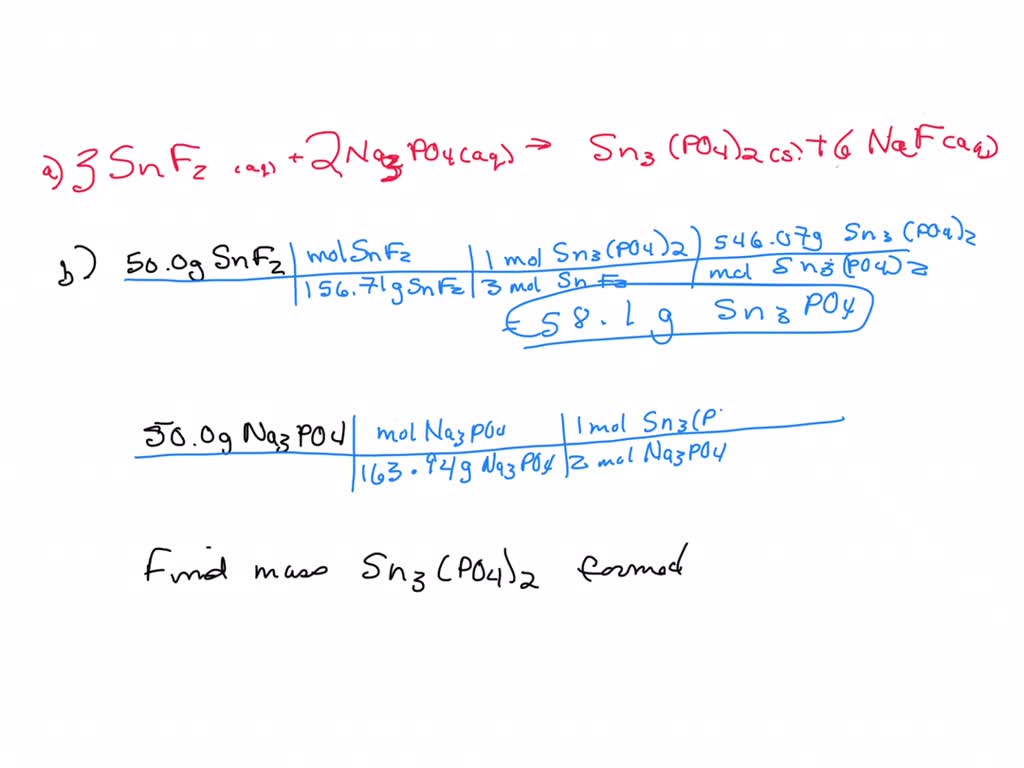 a) 3 SnF2 (aq) + 2 Na3PO4(aq) → Sn3(PO4)2(s) + 6 NaF(aq)
b) 50.0g SnF2 | mol SnF2 | 1 mol Sn3(PO4)2 | 546.07g Sn3(PO4)2
156.71g SnF2 | 3 mol SnF2 | mol Sn3(PO4)2
= 58.1 g Sn3PO4
50.0g Na3PO4 | mol Na3PO4 | 1 mol Sn3(P
163.94g Na3PO4 | 2 mol Na3PO4
Find mass Sn3(PO4)2 formed